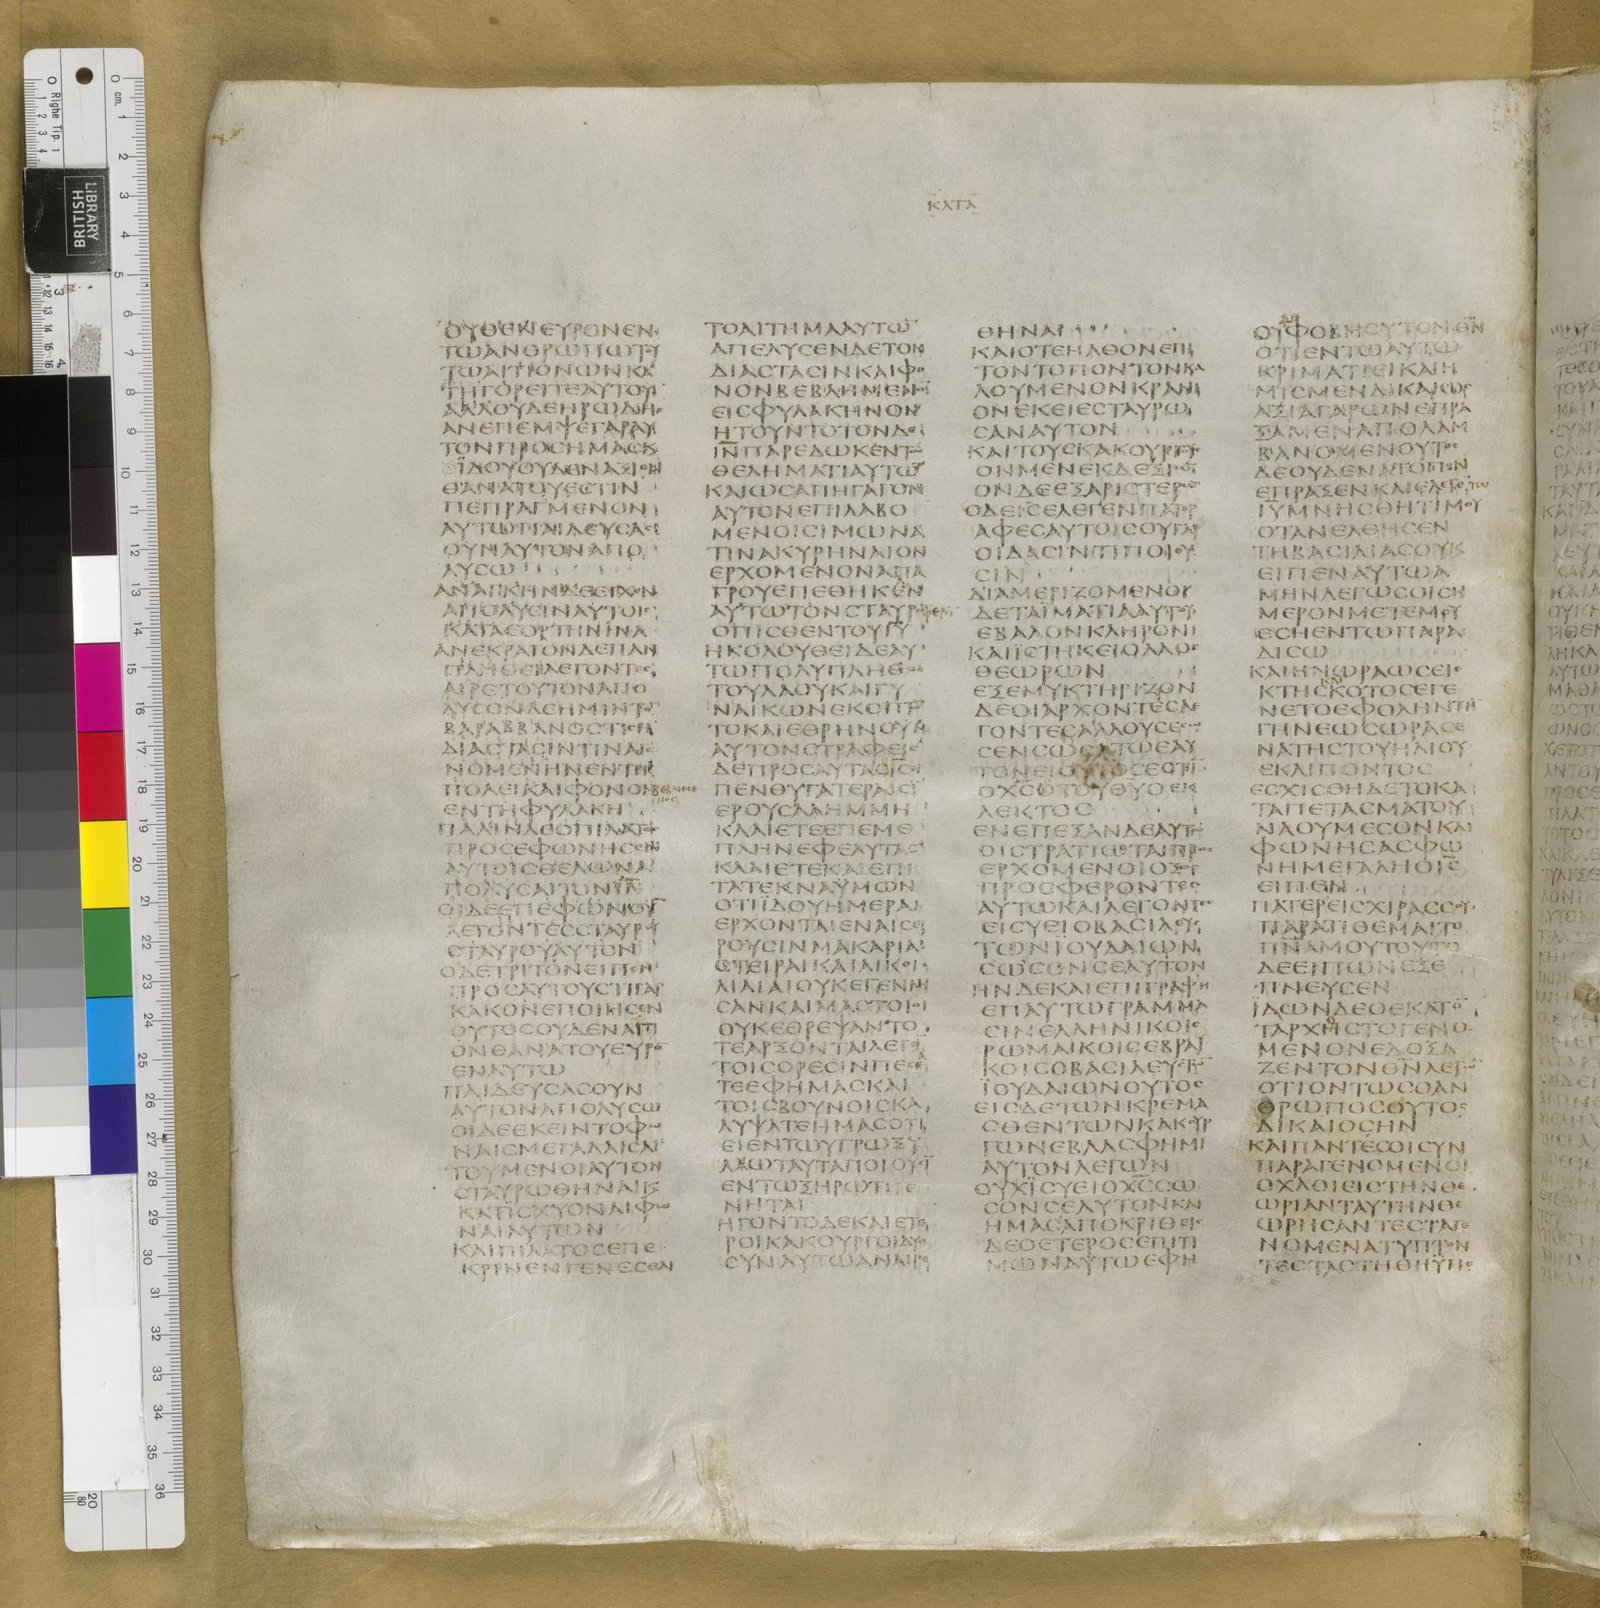 ΚΑΤΑ
ΟΥΘΕΝΕΥΡΟΝΕΝ
ΤΩΑΝΘΡΩΠΩΤΥ
ΤΩΑΙΤΙΟΝΩΝΚΑ
ΤΗΓΟΡΕΙΤΕΑΥΤΟΥ
ΑΛΛΟΥΔΕΗΡΩΔΗ
ΑΝΕΠΕΜΨΕΓΑΡΑΥ
ΤΟΝΠΡΟΣΗΜΑΣΚ
ΪΔΟΥΟΥΔΕΝΑΞΙΟΝ
ΘΑΝΑΤΟΥΕΣΤΙΝ
ΠΕΠΡΑΓΜΕΝΟΝ
ΑΥΤΩΠΑΙΔΕΥΣΑΣ
ΟΥΝΑΥΤΟΝΑΠΟ
ΛΥΣΩ
ΑΝΑΓΚΗΝΔΕΕΙΧΕΝ
ΑΠΟΛΥΕΙΝΑΥΤΟΙΣ
ΚΑΤΑΕΟΡΤΗΝΙΝΑ
ΑΝΕΚΡΑΓΟΝΔΕΠΑΝ
ΠΛΗΘΕΙΛΕΓΟΝΤΕΣ
ΑΙΡΕΤΟΥΤΟΝΑΠΟ
ΛΥΣΟΝΔΕΗΜΙΝΤΟ
ΒΑΡΑΒΒΑΝΟΣΤΙΣ
ΔΙΑΣΤΑΣΙΝΤΙΝΑ
ΝΟΜΕΝΗΝΕΝΤΗ
ΠΟΛΕΙΚΑΙΦΟΝΟΝ
ΕΝΤΗΦΥΛΑΚΗ
ΠΑΛΙΝΔΕΟΠΙΛΑΤΟ
ΠΡΟΣΕΦΩΝΗΣΕΝ
ΑΥΤΟΙΣΘΕΛΩΝΑ
ΠΟΛΥΣΑΙΤΟΝΙΝ
ΟΙΔΕΕΠΕΦΩΝΟΥ
ΛΕΓΟΝΤΕΣΣΤΑΥΡΟΥ
ΣΤΑΥΡΟΥΑΥΤΟΝ
ΟΔΕΤΡΙΤΟΝΕΙΠΕΝ
ΠΡΟΣΑΥΤΟΥΣΤΙΓΑΡ
ΚΑΚΟΝΕΠΟΙΗΣΕΝ
ΟΥΤΟΣΟΥΔΕΝΑΙΤΙ
ΟΝΘΑΝΑΤΟΥΕΥΡΟ
ΕΝΑΥΤΩ
ΠΑΙΔΕΥΣΑΣΟΥΝ
ΑΥΤΟΝΑΠΟΛΥΣΩ
ΟΙΔΕΕΚΕΙΝΤΟΦΩ
ΝΑΙΣΜΕΓΑΛΑΙΣΑΙ
ΤΟΥΜΕΝΟΙΑΥΤΟΝ
ΣΤΑΥΡΩΘΗΝΑΙΚ
ΚΑΤΙΣΧΥΟΝΑΙΦΩ
ΝΑΙΑΥΤΩΝ
ΚΑΙΠΙΛΑΤΟΣΕΠΕ
ΚΡΙΝΕΝΓΕΝΕΣΘΑΙ
ΤΟΑΙΤΗΜΑΑΥΤΩ
ΑΠΕΛΥΣΕΝΔΕΤΟΝ
ΔΙΑΣΤΑΣΙΝΚΑΙΦΟ
ΝΟΝΒΕΒΛΗΜΕΝΟ
ΕΙΣΦΥΛΑΚΗΝΟΝ
ΗΤΟΥΝΤΟΤΟΝΔΕ
ΙΝΠΑΡΕΔΩΚΕΝΤΩ
ΘΕΛΗΜΑΤΙΑΥΤΩ
ΚΑΙΩΣΑΠΗΓΑΓΟΝ
ΑΥΤΟΝΕΠΙΛΑΒΟ
ΜΕΝΟΙΣΙΜΩΝΑ
ΤΙΝΑΚΥΡΗΝΑΙΟΝ
ΕΡΧΟΜΕΝΟΝΑΠΑ
ΓΡΟΥΕΠΕΘΗΚΕΝ
ΑΥΤΩΤΟΝΣΤΑΥΡΟ
ΟΠΙΣΘΕΝΤΟΥΙΥ
ΗΚΟΛΟΥΘΕΙΔΕΑΥ
ΤΩΠΟΛΥΠΛΗΘΟΣ
ΤΟΥΛΑΟΥΚΑΙΓΥ
ΝΑΙΚΩΝΕΚΟΠΤΟ
ΤΟΚΑΙΕΘΡΗΝΟΥΝ
ΑΥΤΟΝΣΤΡΑΦΕΙΣ
ΔΕΠΡΟΣΑΥΤΑΣΟΙΣ
ΠΕΝΘΥΓΑΤΕΡΑΙΣΪ
ΕΡΟΥΣΑΛΗΜΜΗ
ΚΛΑΙΕΤΕΕΠΕΜΕ
ΠΛΗΝΕΦΕΑΥΤΑΣ
ΚΛΑΙΕΤΕΚΑΙΕΠΙ
ΤΑΤΕΚΝΑΫΜΩΝ
ΟΤΙΪΔΟΥΗΜΕΡΑΙ
ΕΡΧΟΝΤΑΙΕΝΑΙΣΕ
ΡΟΥΣΙΝΜΑΚΑΡΙΑΙ
ΣΤΕΙΡΑΙΚΑΙΑΙΚΟΙ
ΛΙΑΙΑΙΟΥΚΕΓΕΝΝΗ
ΣΑΝΚΑΙΜΑΣΤΟΙΟΙ
ΟΥΚΕΘΡΕΨΑΝΤΟ
ΤΕΑΡΞΟΝΤΑΙΛΕΓΙ
ΤΟΙΣΟΡΕΣΙΝΠΕΣΕ
ΤΕΕΦΗΜΑΣΚΑΙ
ΤΟΙΣΒΟΥΝΟΙΣΚΑ
ΛΥΨΑΤΕΗΜΑΣΟΤΙ
ΕΙΕΝΤΩΥΓΡΩΞΥ
ΛΩΤΑΥΤΑΠΟΙΟΥΣΙ
ΕΝΤΩΞΗΡΩΤΙΓΕ
ΝΗΤΑΙ
ΗΓΟΝΤΟΔΕΚΑΙΕΤΕ
ΡΟΙΚΑΚΟΥΡΓΟΙΔΥΟ
ΣΥΝΑΥΤΩΑΝΑΙΡΕ
ΘΗΝΑΙ
ΚΑΙΟΤΕΗΛΘΟΝΕΠΙ
ΤΟΝΤΟΠΟΝΤΟΝΚΑ
ΛΟΥΜΕΝΟΝΚΡΑΝΙ
ΟΝΕΚΕΙΕΣΤΑΥΡΩ
ΣΑΝΑΥΤΟΝ
ΚΑΙΤΟΥΣΚΑΚΟΥΡΓΥ
ΟΝΜΕΝΕΚΔΕΞΙΩ
ΟΝΔΕΕΞΑΡΙΣΤΕΡΩ
ΟΔΕΙΣΕΛΕΓΕΝΠΑΤΕΡ
ΑΦΕΣΑΥΤΟΙΣΟΥΓΑΡ
ΟΙΔΑΣΙΝΤΙΠΟΙΟΥ
ΣΙΝ
ΔΙΑΜΕΡΙΖΟΜΕΝΟΙ
ΔΕΤΑΪΜΑΤΙΑΑΥΤΟΥ
ΕΒΑΛΟΝΚΛΗΡΟΝ
ΚΑΙΪΣΤΗΚΕΙΟΛΑΟΣ
ΘΕΩΡΩΝ
ΕΞΕΜΥΚΤΗΡΙΖΟΝ
ΔΕΟΙΑΡΧΟΝΤΕΣΛΕ
ΓΟΝΤΕΣΑΛΛΟΥΣΕ
ΣΕΝΣΩΣΑΤΩΕΑΥ
ΤΟΝΕΙΟΥΤΟΣΕΣΤΙ
ΟΧΣΟΤΟΥΘΥΟΕΚ
ΛΕΚΤΟΣ
ΕΝΕΠΕΞΑΝΔΕΑΥΤΩ
ΟΙΣΤΡΑΤΙΩΤΑΙΠΡΟ
ΕΡΧΟΜΕΝΟΙΟΞΟ
ΠΡΟΣΦΕΡΟΝΤΕΣ
ΑΥΤΩΚΑΙΛΕΓΟΝΤΕΣ
ΕΙΣΥΕΙΟΒΑΣΙΛΕΥΣ
ΤΩΝΙΟΥΔΑΙΩΝ
ΣΩΣΟΝΣΕΑΥΤΟΝ
ΗΝΔΕΚΑΙΕΠΙΓΡΑΦΗ
ΕΠΑΥΤΩΓΡΑΜΜΑ
ΣΙΝΕΛΛΗΝΙΚΟΙΣ
ΡΩΜΑΙΚΟΙΣΕΒΡΑΙ
ΚΟΙΣΟΒΑΣΙΛΕΥΣ
ΪΟΥΔΑΙΩΝΟΥΤΟΣ
ΕΙΣΔΕΤΩΝΚΡΕΜΑ
ΣΘΕΝΤΩΝΚΑΚΟΥΡ
ΓΩΝΕΒΛΑΣΦΗΜΙ
ΑΥΤΟΝΛΕΓΩΝ
ΟΥΧΙΣΥΕΙΟΧΣΣΩ
ΣΟΝΣΕΑΥΤΟΝΚΑΙ
ΗΜΑΣΑΠΟΚΡΙΘΕΙΣ
ΔΕΟΕΤΕΡΟΣΕΠΙΤΙ
ΜΩΝΑΥΤΩΕΦΗ
ΟΥΦΟΒΗΣΥΤΟΝΘΝ
ΟΤΙΕΝΤΩΑΥΤΩ
ΚΡΙΜΑΤΙΕΙΚΑΙΗ
ΜΙΣΜΕΝΔΙΚΑΙΩΣ
ΑΞΙΑΓΑΡΩΝΕΠΡΑ
ΞΑΜΕΝΑΠΟΛΑΜ
ΒΑΝΟΜΕΝΟΥΤΟΣ
ΔΕΟΥΔΕΝΑΤΟΠΟΝ
ΕΠΡΑΞΕΝΚΑΙΕΛΕΓΕΤΩ
ΙΥΜΝΗΣΘΗΤΙΜΟΥ
ΟΤΑΝΕΛΘΗΣΕΝ
ΤΗΒΑΣΙΛΙΑΣΟΥΚ
ΕΙΠΕΝΑΥΤΩΑ
ΜΗΝΛΕΓΩΣΟΙΣΗ
ΜΕΡΟΝΜΕΤΕΜΟΥ
ΕΣΗΕΝΤΩΠΑΡΑ
ΔΙΣΩ
ΚΑΙΗΝΩΡΑΩΣΕΙ
ΚΤΗΣΚΟΤΟΣΕΓΕ
ΝΕΤΟΕΦΟΛΗΝΤΗ
ΓΗΝΕΩΣΩΡΑΣΕ
ΝΑΤΗΣΤΟΥΗΛΙΟΥ
ΕΚΛΙΠΟΝΤΟΣ
ΕΣΧΙΣΘΗΔΕΤΟΚΑ
ΤΑΠΕΤΑΣΜΑΤΟΥ
ΝΑΟΥΜΕΣΟΝΚΑΙ
ΦΩΝΗΣΑΣΦΩ
ΝΗΜΕΓΑΛΗΟΙΣ
ΕΙΠΕΝ
ΠΑΤΕΡΕΙΣΧΙΡΑΣΣΟΥ
ΠΑΡΑΤΙΘΕΜΑΙΤΟ
ΠΝΑΜΟΥΤΟΥΤΟ
ΔΕΕΙΠΩΝΕΞΕ
ΠΝΕΥΣΕΝ
ΪΔΩΝΔΕΟΕΚΑΤΟ
ΤΑΡΧΗΣΤΟΓΕΝΟ
ΜΕΝΟΝΕΔΟΞΑ
ΖΕΝΤΟΝΘΝΛΕΓΩ
ΟΤΙΟΝΤΩΣΟΑΝ
ΘΡΩΠΟΣΟΥΤΟΣ
ΔΙΚΑΙΟΣΗΝ
ΚΑΙΠΑΝΤΕΣΟΙΣΥΝ
ΠΑΡΑΓΕΝΟΜΕΝΟΙ
ΟΧΛΟΙΕΙΣΤΗΝΘΕ
ΩΡΙΑΝΤΑΥΤΗΝΘΕ
ΩΡΗΣΑΝΤΕΣΤΑΓΕ
ΝΟΜΕΝΑΤΥΠΤΟΝ
ΤΕΣΤΑΣΤΗΘΗΫΠΕ